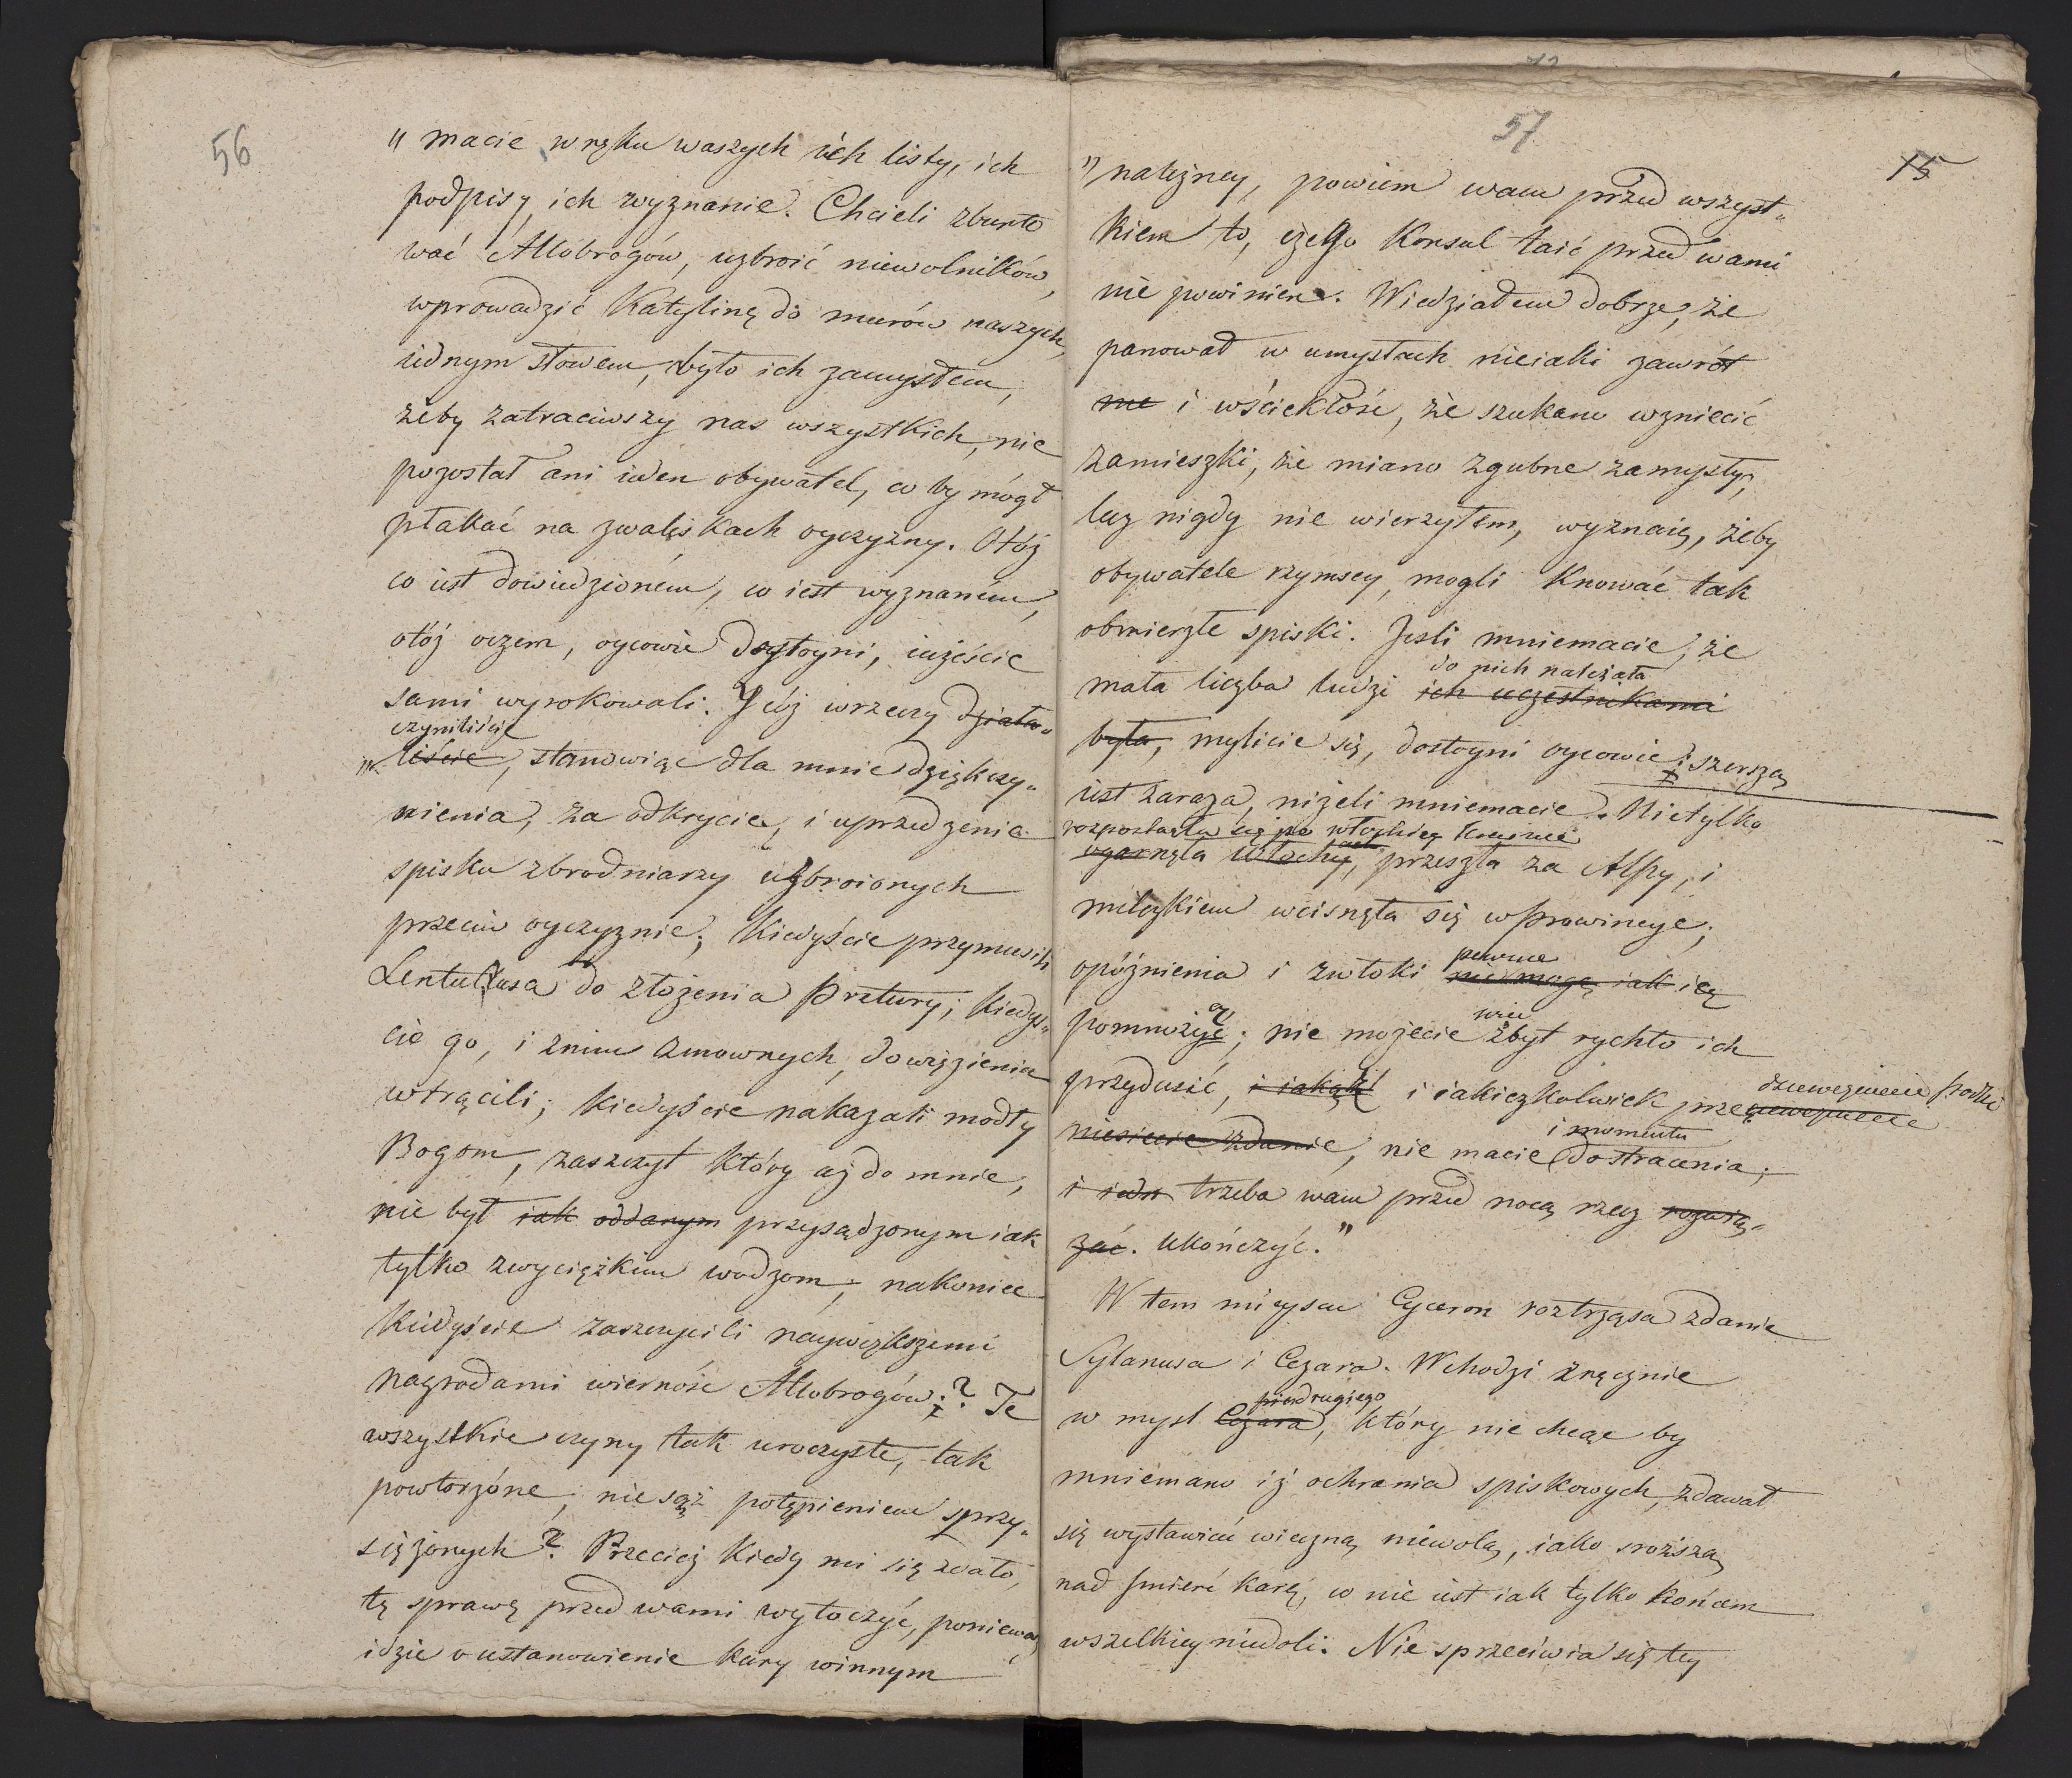 56
" macie w ręku waszych ich listy, ich
podpisy, ich wyznanie. Chcieli zbunto
wać Allobrogów, uzbroić niewolników,
wprowadzić Katylinę do murów naszych,
iednym słowem, było ich zamysłem,
żeby zatraciwszy nas wszystkich, nie
pozostał ani ieden obywatel, co by mógł
płakać na zwaliskach oyczyzny. Otóż
co iest dowiedzioném, co iest wyznaném,
otóż oczem, oycowie dostoyni, iużeście
sami wyrokowali. I cóż wrzeczy działa„
czyniliście
"liście, stanowiąc dla mnie dziękczy„
nienia, za odkrycie, i uprzedzenie
spisku zbrodniarzy uzbroionych
przeciw oyczyznie; kiedyście przymusili
Lentulusa do złożenia Pretury; kiedyś„
cie go, i znim zmownych, do więzienia
wtrącili; kiedyście nakazali modły
Bogom, zaszczyt który aż do mnie,
nie był iak oddanym przysądzonym iak
tylko zwycięzkim wodzom; nakoniec
kiedyście zaszczycili naywiększemi
nagrodami wierność Allobrogów? Te
wszystkie czyny tak uroczyste, tak
powtorzóne, nie sąż potępieniem sprzy„
siężonych? Przecież kiedy mi się zdało,
tę sprawę przed wami wytoczyć, ponieważ
idzie o ustanowienie kary winnym
57
15
"należney, powiem wam przed wszyst„
kiem to, czego Konsul taić przed wami
nie powinien. Wiedziałem dobrze, że
panował w umysłach nieiaki zawrót
me i wściekłość, że szukano wzniecić
zamieszki, że miano zgubne zamysły;
lecz nigdy nie wierzyłem, wyznaię, żeby
obywatele rzymscy, mogli knować tak
obmierzłe spiski. Jesli mniemacie, że
do nich należała
mała liczba ludzi ich uczestnikami
była, mylicie się, dostoyni oycowie; szersza
iest zaraza, niżeli mniemacie. Nietylko
rozpostarła się po włoskiey
ogarnęła Włochy, przeszła za Alpy, i
milczkiem wcisnęła się w Prowincye;
pewnie
opóźnienia i zwłoki nie mogą iak ią
pomnożyć; nie możecie
więc
zbyt rychło ich
przydusić, i iakąk i iakieżkolwiek
niesiecie zdanie, nie macie
i momentu
do stracenia;
i iedn trzeba wam przed nocą rzecz rozwią„
zać. ukończyć."
W tem mieyscu Cyceron roztrząsa zdanie
Sylanusa i Cezara. Wchodzi zręcznie
w mysl Cezara, który nie chcąc by
mniemano iż ochrania spiskowych, zdawał
się wystawiać wieczną niewolą, iako sroższą
nad smierć karę, co nie iest iak tylko końcem
wszelkiey niedoli. Nie sprzeciwia się tey